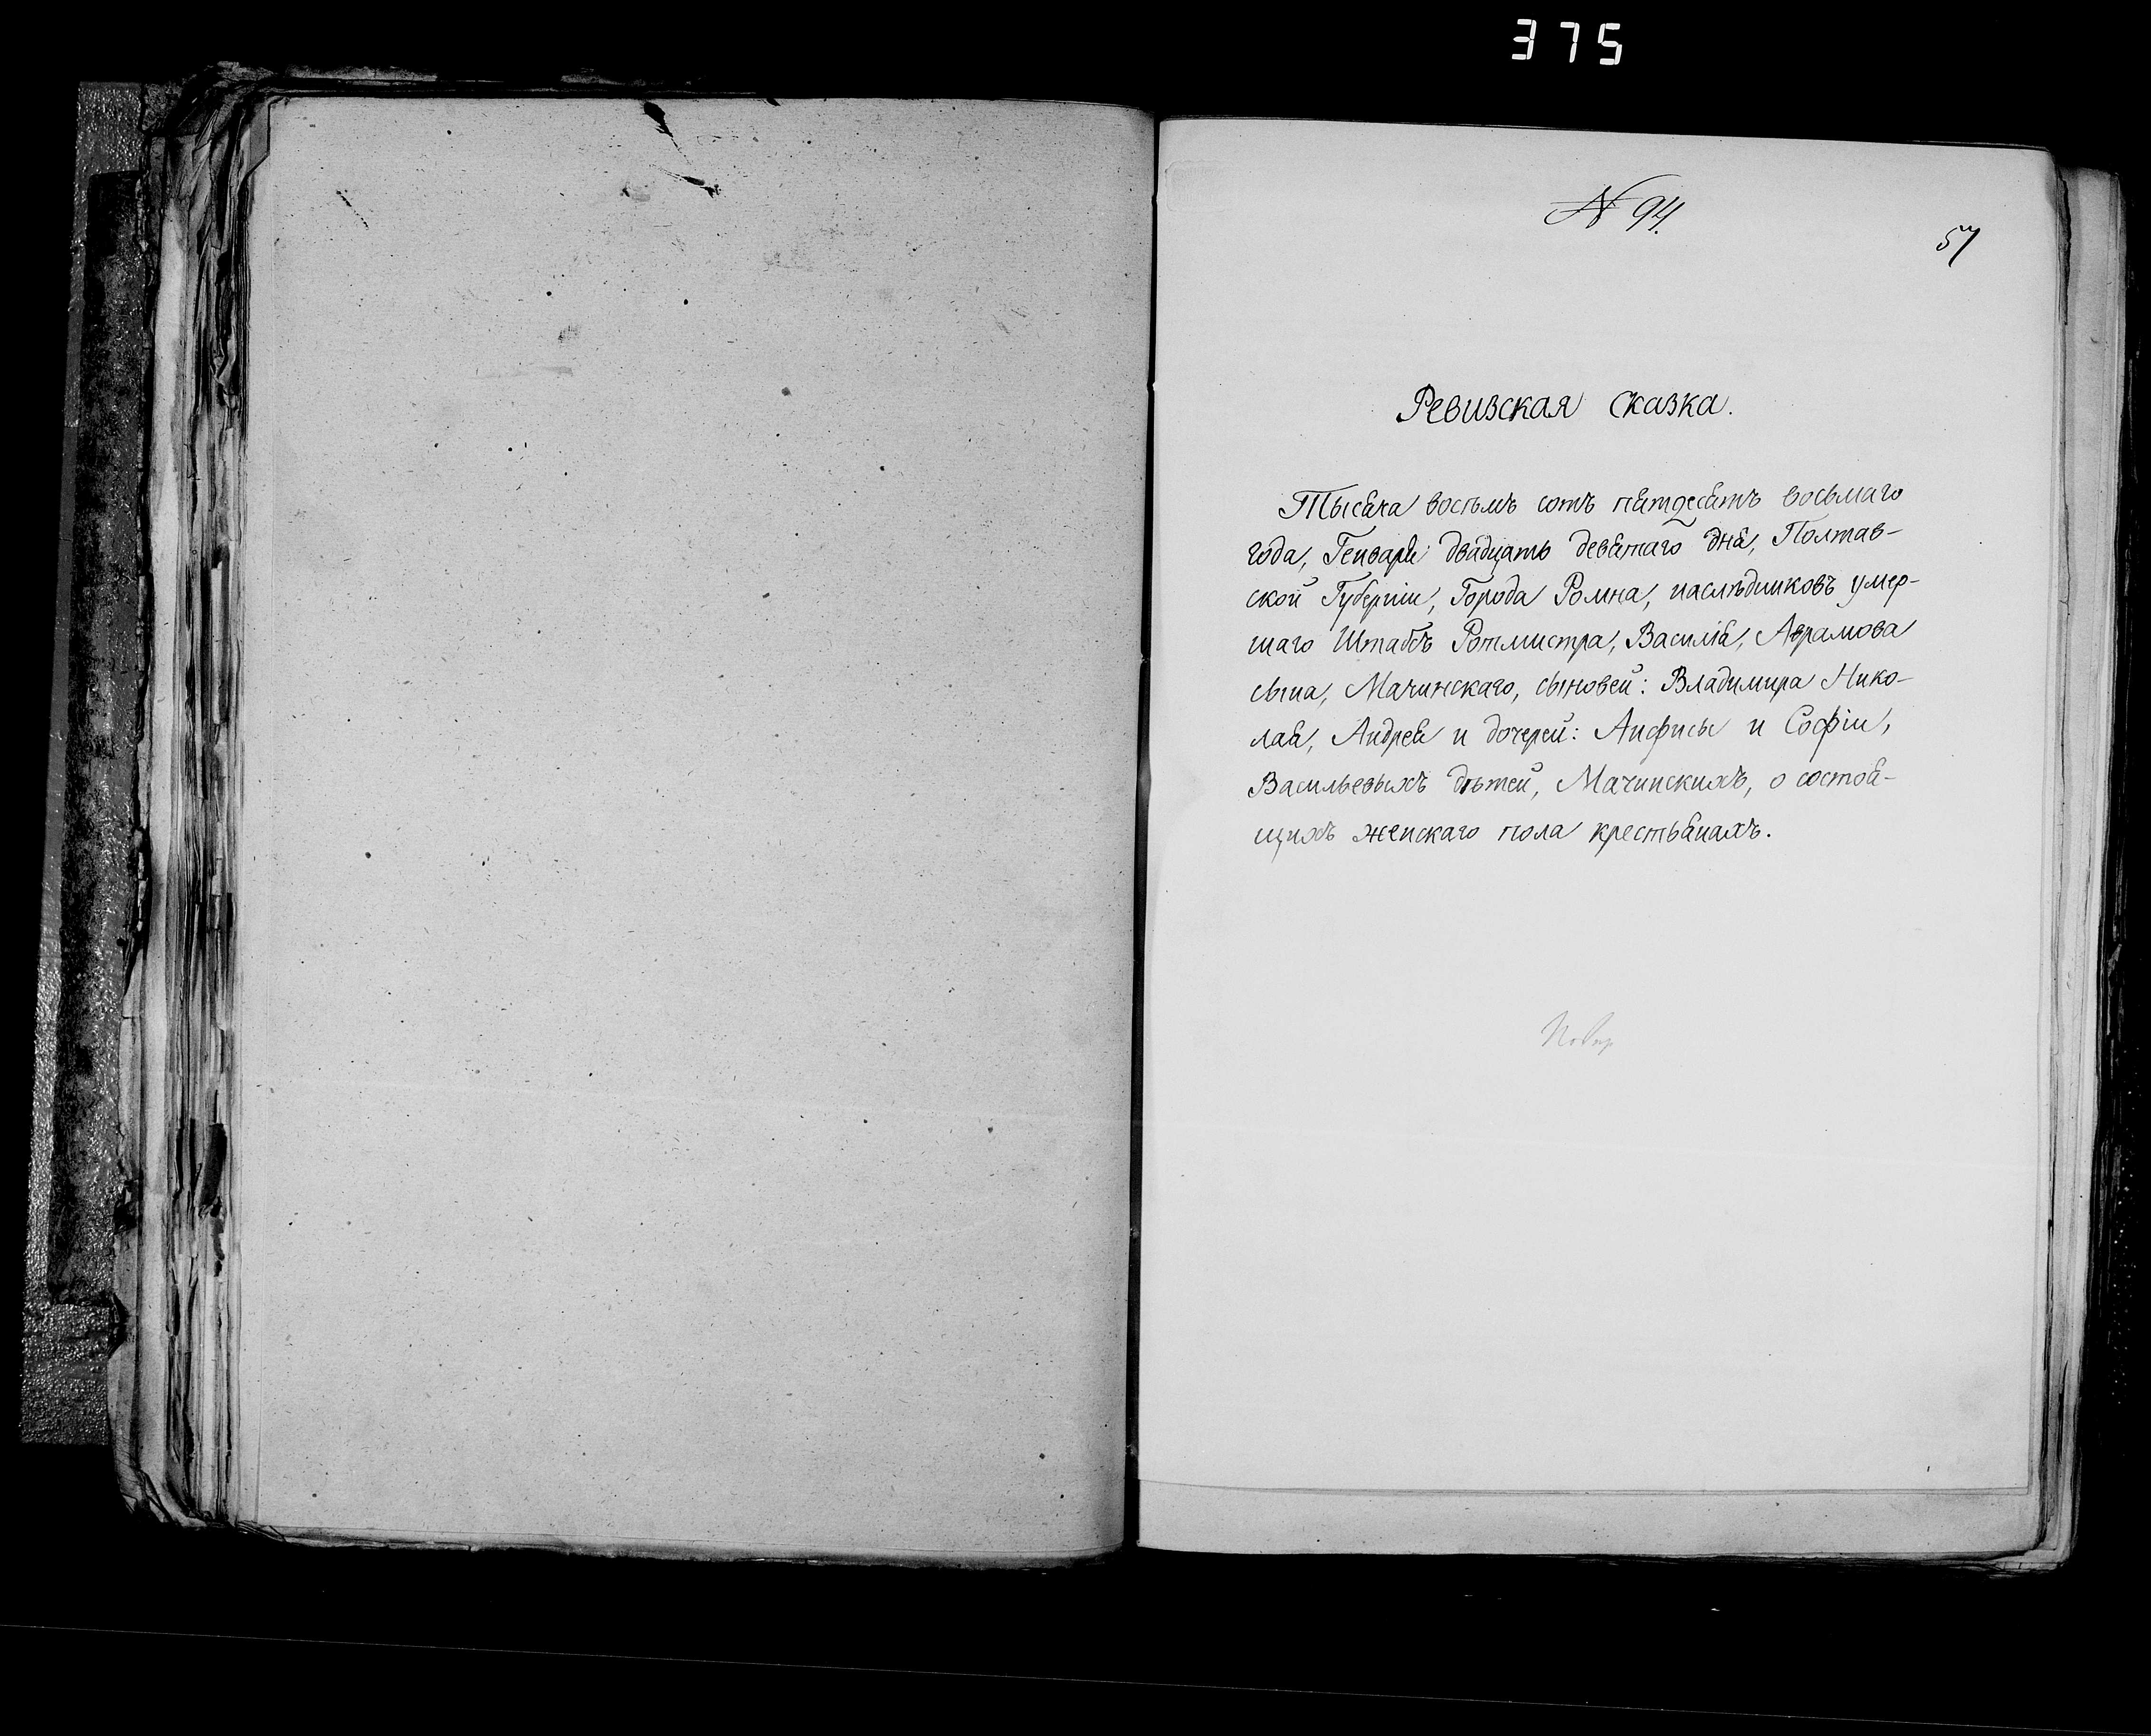 375
№ 94.
57
Ревизская сказка.
Тысяча восемь сотъ пятдесятъ восьмаго
года, Генваря двадцать девятаго дня, Полтав-
ской Губерніи, Города Ромна, наслѣдниковъ умер-
шаго Штабъ Ротмистра, Василія, Аврамова
сына, Мачинскаго, сыновей: Владимира Нико-
лая, Андрея и дочерей: Анфисы и Софіи,
Васильевыхъ дѣтей, Мачинскихъ, о состоя-
щихъ женскаго пола крестьянахъ.